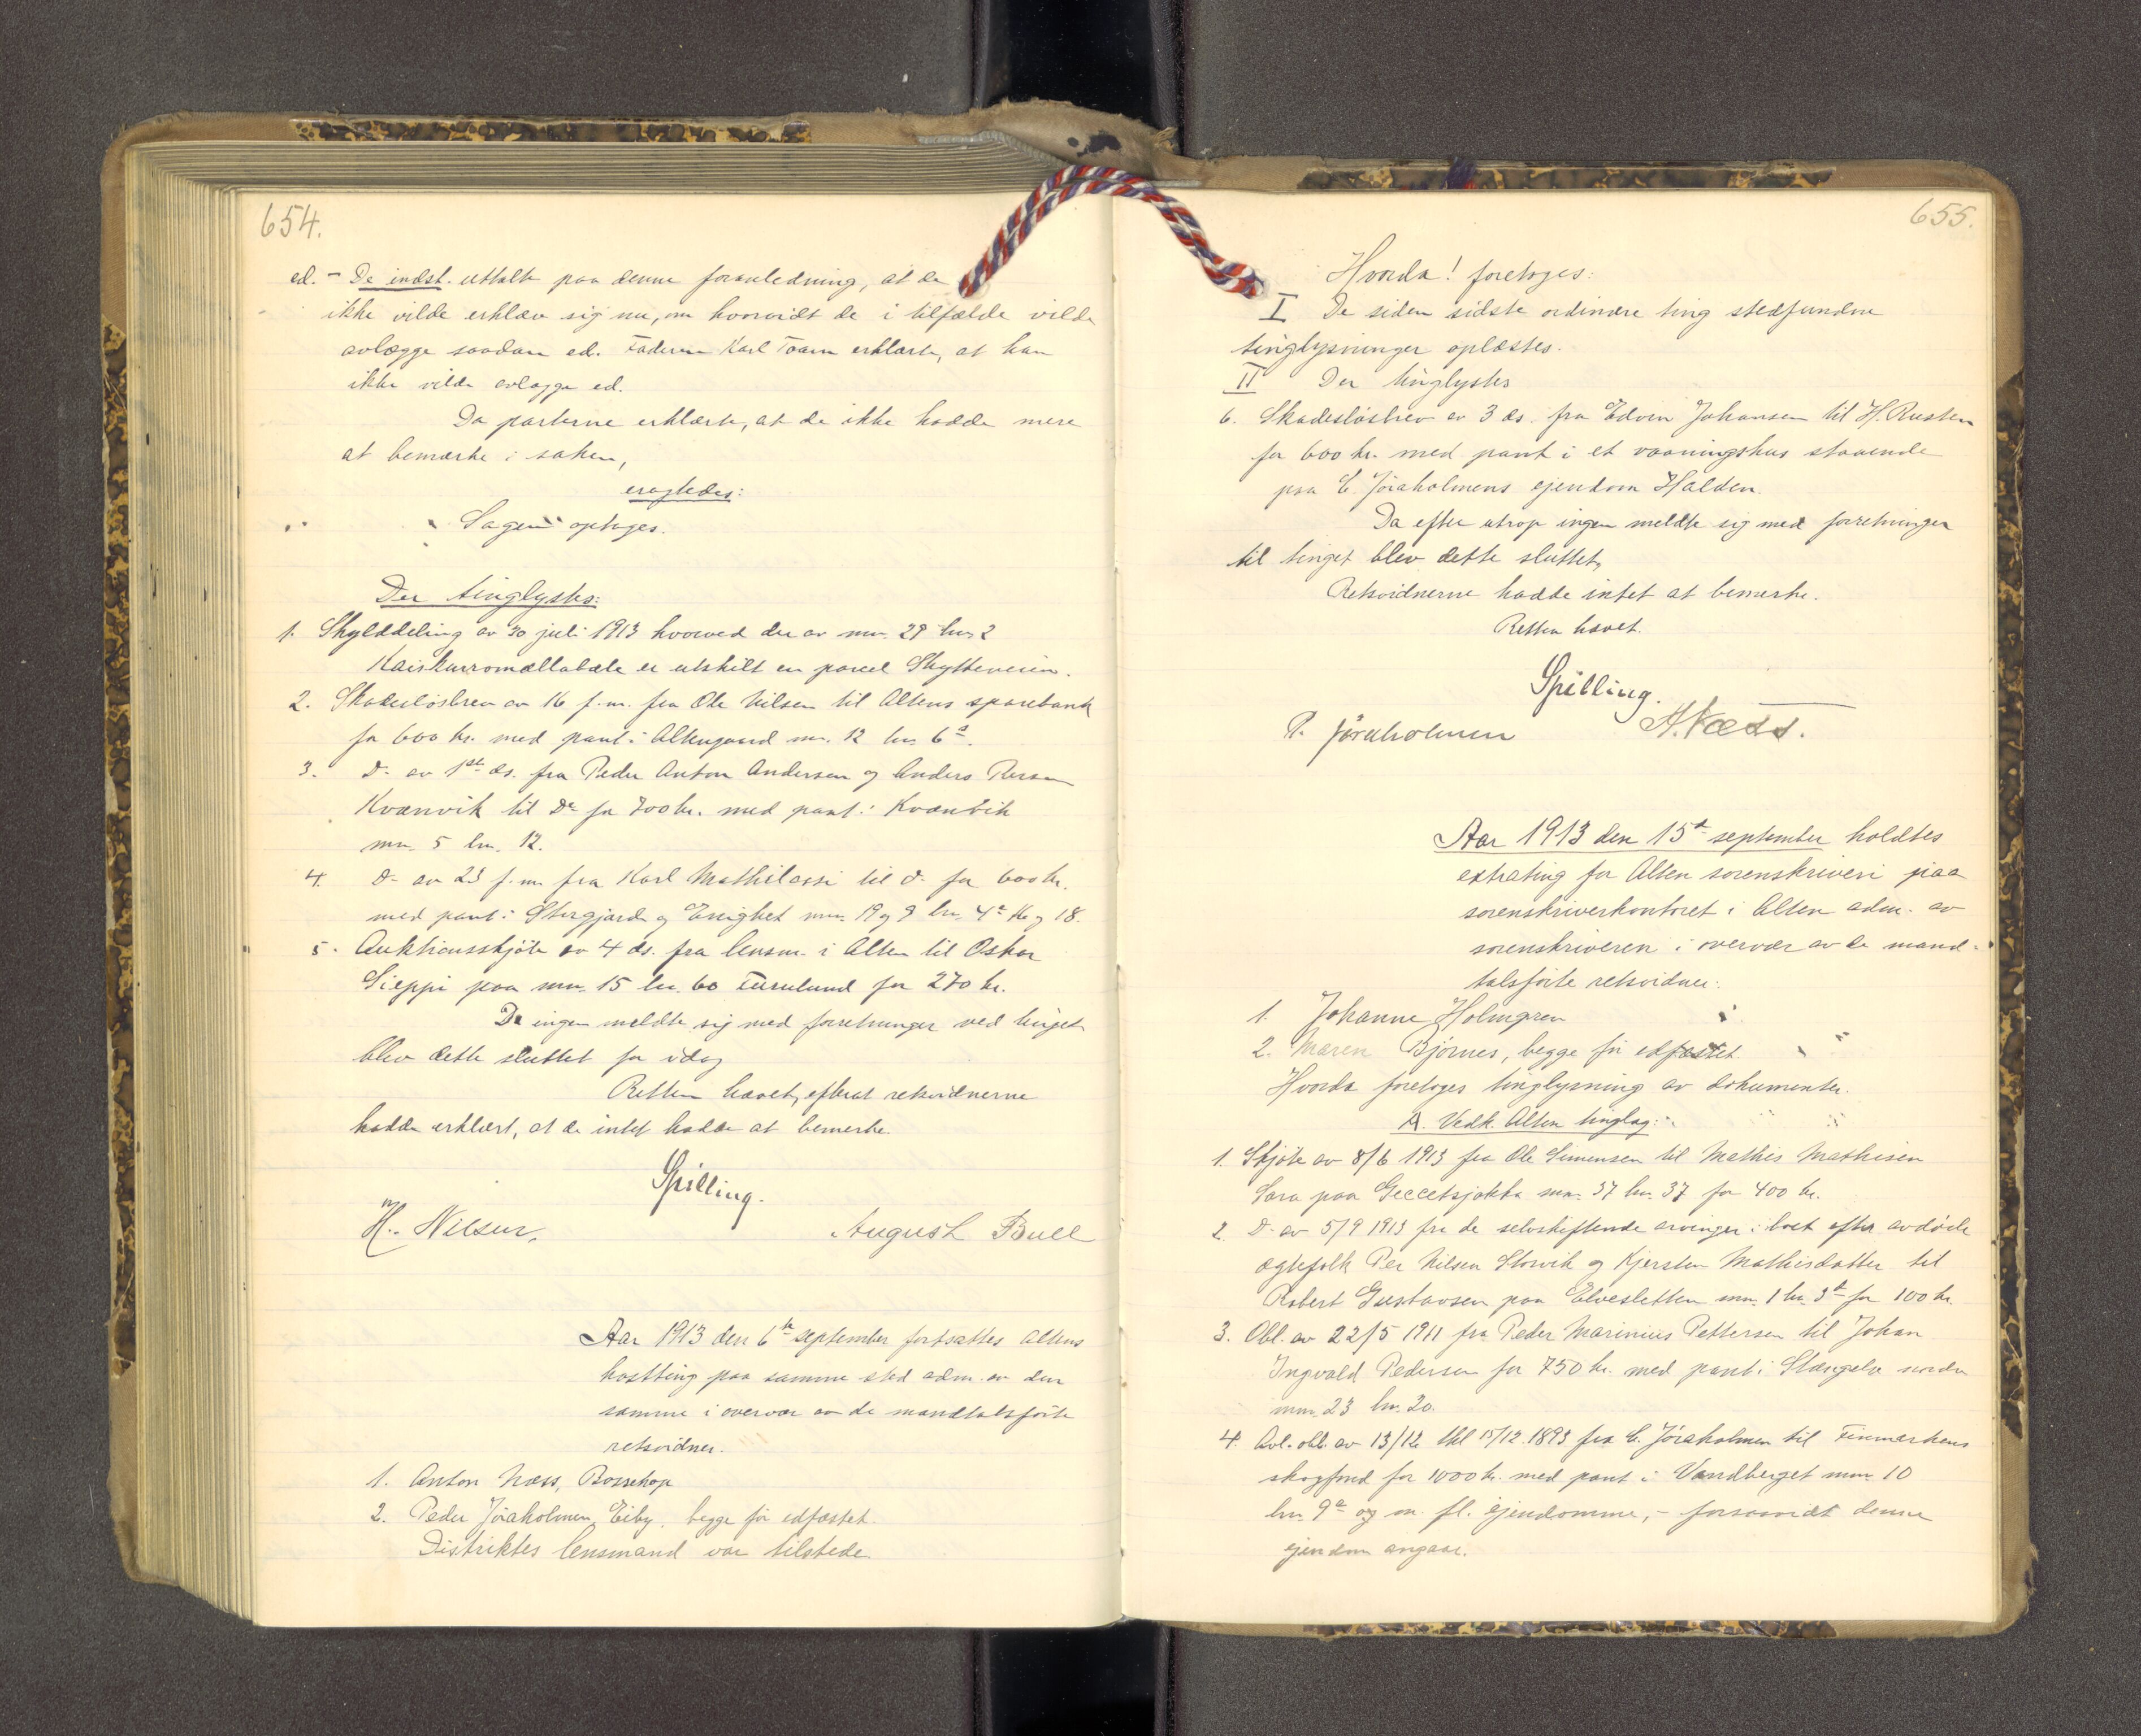 654.
ed. - De indst. uttalte paa denne foranledning, at de
ikke vilde erklære sig nu, om hvorvidt de i tilfælde vilde
avlægge saadan ed. Faderen Karl Toarn erklærte, at han
ikke vilde avlægge ed.
Da parterne erklærte, at de ikke hadde mere
at bemærke i saken,
eragtedes:
Sagen optages.
Der tinglystes:
1. Skylddeling av 30 juli 1913 hvorved der av mn. 29 bn. 2
Kaiskurromællabæle er utskilt en parcel Skytteveien.
2. Skadesløsbrev av 16 f.m. fra Ole Nilsen til Altens sparebank
for 600 kr. med pant i Altengaard mn. 12 bn. 6a.
3. Do av 1ste ds. fra Peder Anton Andersen og Anders Persen
Kvænvik til Do for 700 kr. med pant i Kvænvik
mn. 5 bn. 12.
4. do av 23 f.m. fra Karl Mathilassi til do for 600 kr.
med pant i Storgjorde og Enighet mn. 19 og 9 bn. 4a K og 18.
5. Auktionsskjøte av 4 ds. fra lensm. i Alten til Oskar
Sieppi paa mn. 15 bn. 60 Furulund for 270 kr.
Da ingen meldte sig med forretninger ved tinget
blev dette sluttet for idag
Retten hævet, efterat retsvidnerne
hadde erklært, at de intet hadde at bemerke.
Spilling.
H. Nilsen.
August Bull
Aar 1913 den 6te september fortsattes Altens
høstting paa samme sted adm. av den
samme i overvær av de mandtalsførte
retsvidner.
1. Anton Næss, Bossekop
2. Peder Jöraholmen, Eiby, begge før edfæstet.
Distriktets lensmand var tilstede
655.
Hvorda! foretoges:
I De siden sidste ordinære ting stedfundne
tinglysninger oplæstes.
II Der tinglystes
6. Skadesløsbrev av 3 ds. fra Edvin Johansen til H. Rusten
for 600 kr. med pant i et vaaningshus staaende
paa E. Jöraholmens ejendom Halden.
Da efter utrop ingen meldte sig med forretninger
til tinget blev dette sluttet.
Retsvidnerne hadde intet at bemerke.
Retten hævet.
Spilling.
P. Jöraholmen
A. Næss.
Aar 1913 den 15de september holdtes
extrating for Alten sorenskriveri paa
sorenskriverkontoret i Alten adm. av
sorenskriveren i overvær av de mand-
talsførte retsvidner:
1. Johanne Holmgren
2. Maren Bjørnes, begge før edfæstet
Hvorda foretoges tinglysning av dokumenter.
A. Vedk. Alten tinglag:
1. Skjøte av 8/6 1913 fra Ole Simensen til Mathis Mathisen
Sara paa Geccetsjokka mn. 37 bn. 37 for 400 kr.
2. Do av 5/9 1913 fra de selvskiftende arvinger i boet efter avdøde
ægtefolk Per Nilsen Storvik og Kjersten Mathisdatter til
Robert Gustavsen paa Elvesletten mn. 1 bn. 3 for 100 kr.
3. Obl. av 22/5 1911 fra Peder Marinius Pettersen til Johan
Ingvald Pedersen for 750 kr. med pant i Stengelv nordre
mn. 23 bn. 20.
4. Avl. obl. av 13/12 tbl 15/12 1893 fra E. Jöraholmen til Finmarkens
skogfond for 1000 kr. med pant i Vandberget mn. 10
bn. 9a og m. fl. ejendomme, - forsaavidt denne
ejendom angaar.